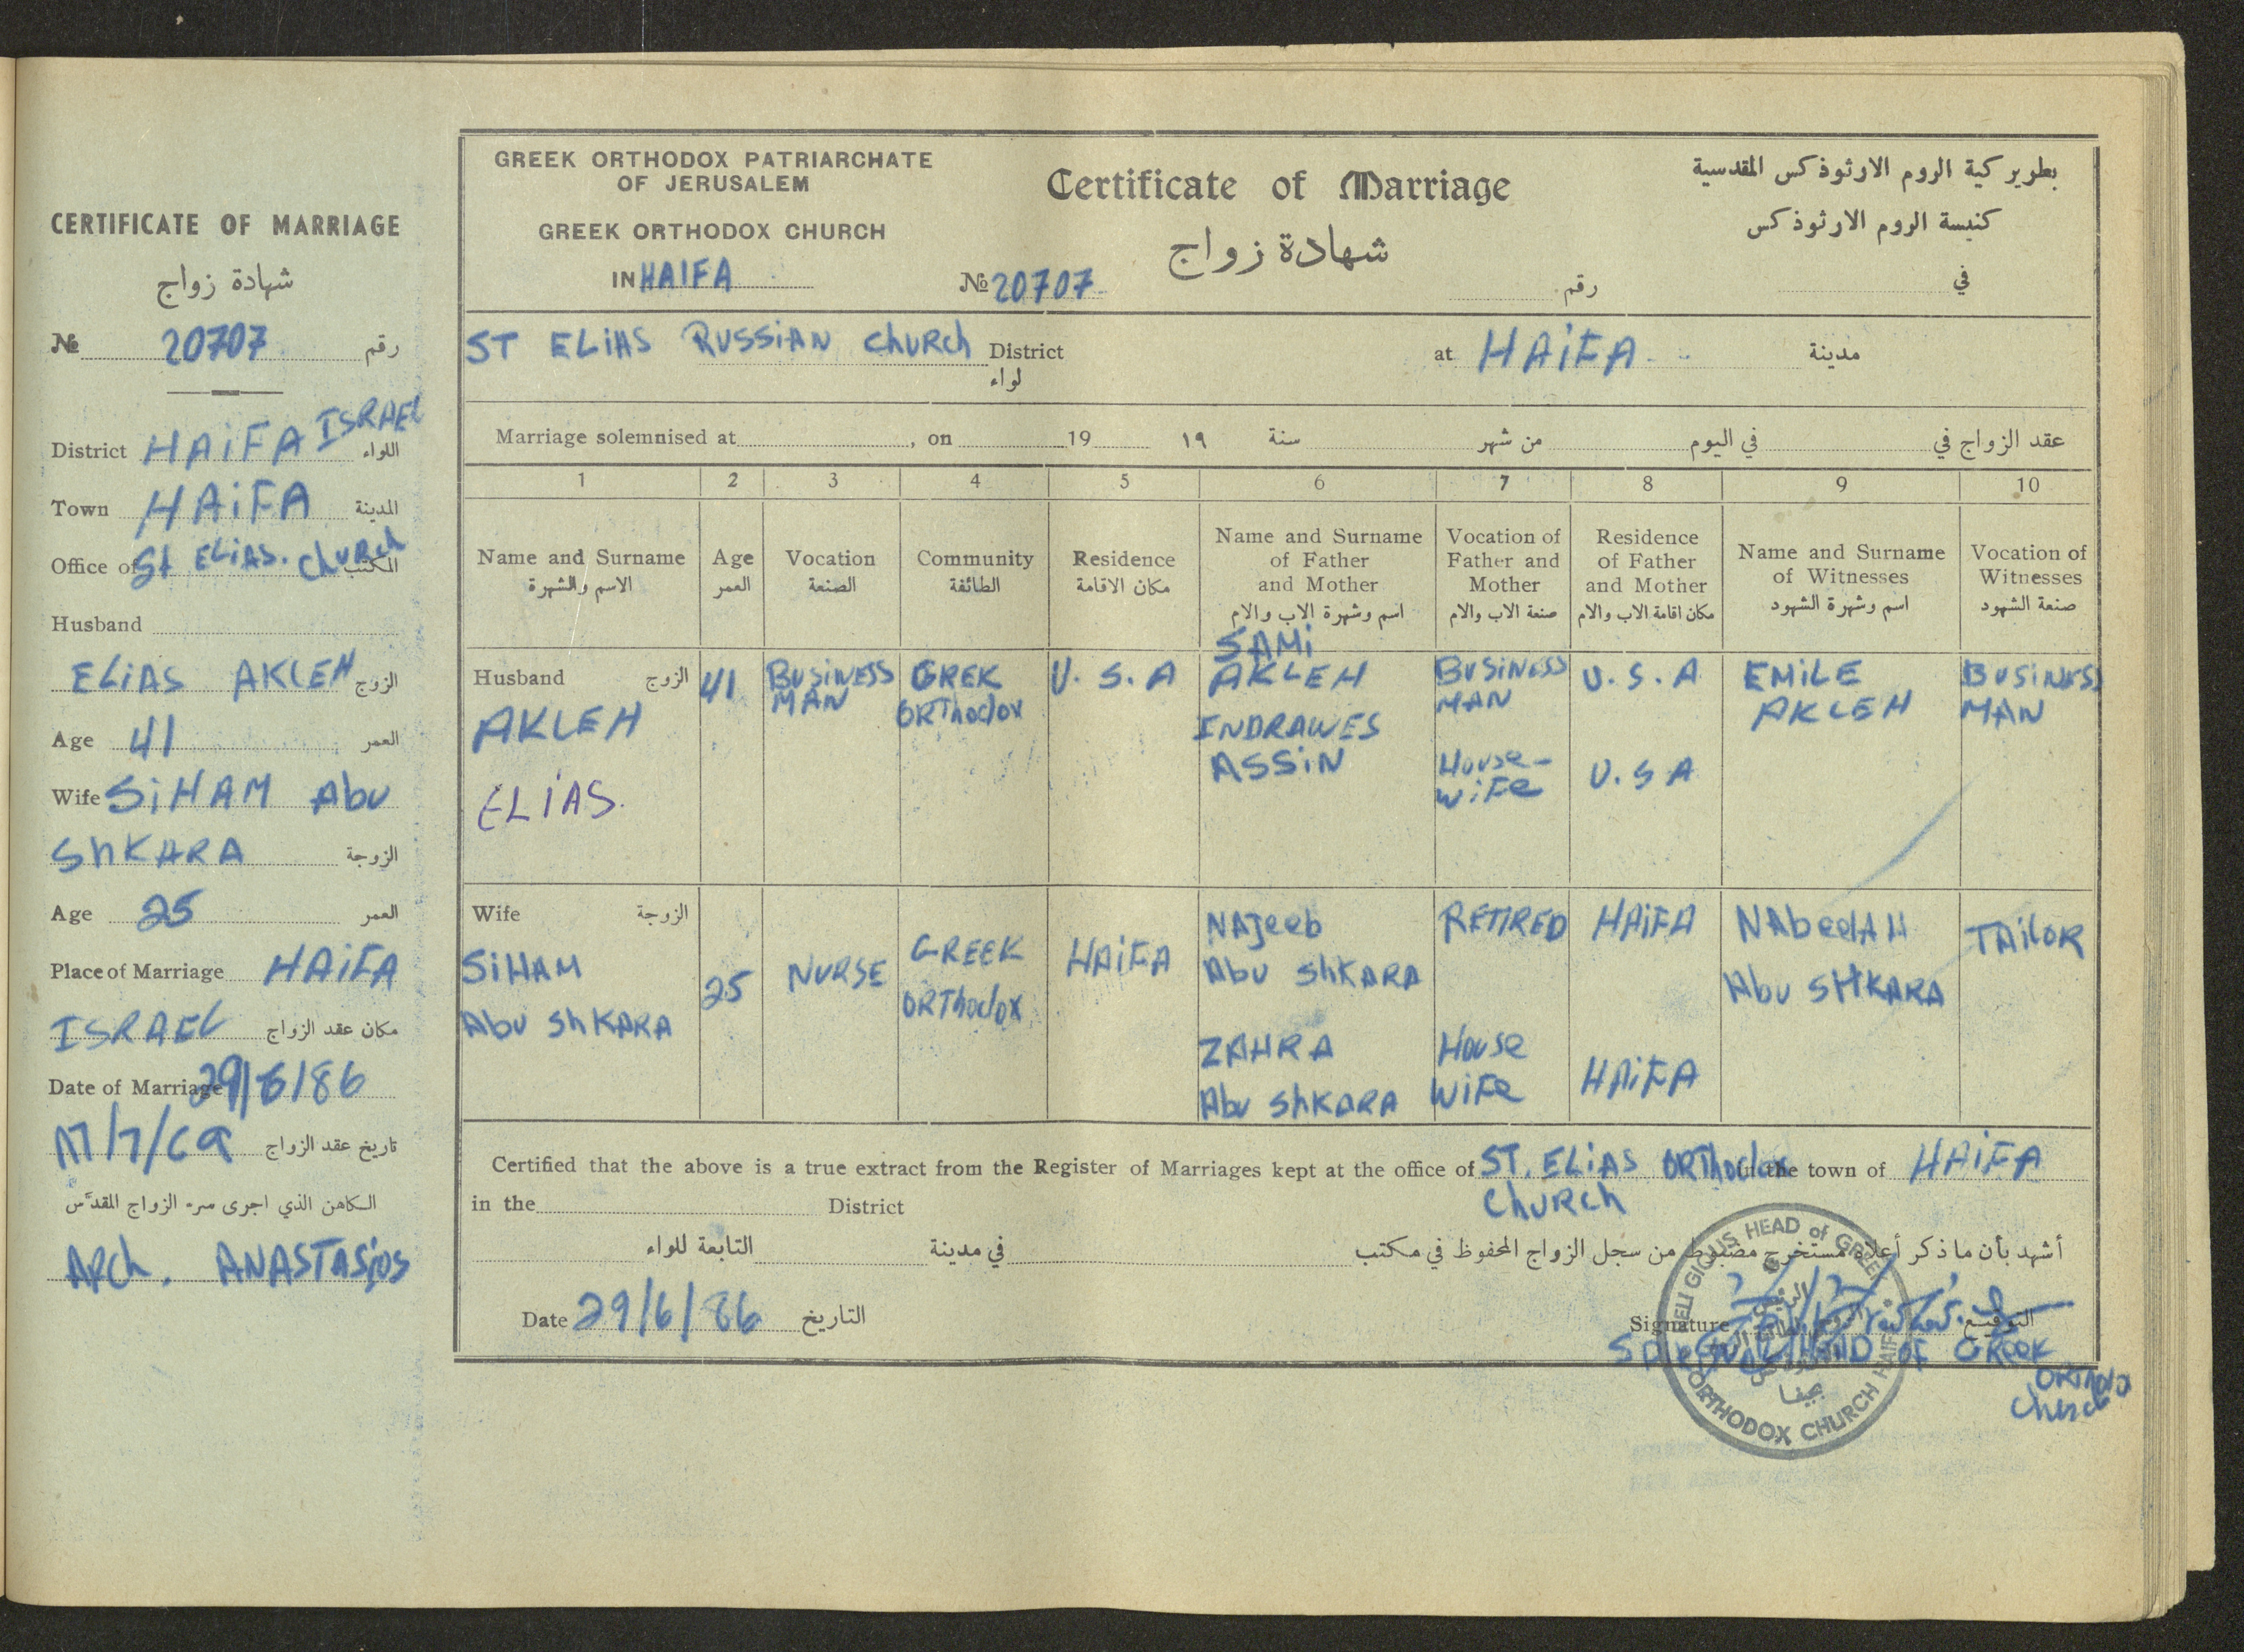 CERTIFICATE OF MARRIAGE
شهادة زواج
№ 20707 رقم
District HAIFA ISRAEL اللواء
Town HAIFA المدينة
Office of St ELIAS. ChURch المكتب
Husband
ELIAS AKLEH الزوج
Age 41 العمر
Wife SIHAM Abu
ShKARA الزوجة
Age 25 العمر
Place of Marriage HAIFA
ISRAEL مكان عقد الزواج
Date of Marriage 29/6/86
تاريخ عقد الزواج
الكاهن الذي اجرى سر الزواج المقدّس
ARch. ANASTASIOS
GREEK ORTHODOX PATRIARCHATE
OF JERUSALEM
GREEK ORTHODOX CHURCH
IN HAIFA
Certificate of Marriage
شهادة زواج
№ 20707 رقم
بطريركية الروم الارثوذكس المقدسية
كنيسة الروم الارثوذكس
في
ST ELIAS RUSSIAN ChURCh District at HAIFA مدينة
لواء
Marriage solemnised at , on 19 ١٩ سنة من شهر في اليوم عقد الزواج في
1 2 3 4 5 6 7 8 9 10
Name and Surname
الاسم والشهرة
Age
العمر
Vocation
الصنعة
Community
الطائفة
Residence
مكان الاقامة
Name and Surname
of Father
and Mother
اسم وشهرة الاب والام
Vocation of
Father and
Mother
صنعة الاب والام
Residence
of Father
and Mother
مكان اقامة الاب والام
Name and Surname
of Witnesses
اسم وشهرة الشهود
Vocation of
Witnesses
صنعة الشهود
Husband الزوج
AKLEH
ELIAS.
41
BUSINESS
MAN
GREK
ORThodox
U.S.A
SAMI
AKLEH
INDRAWES
ASSIN
BUSINESS
MAN
House-
wife
U.S.A
U.S.A
EMILE
AKLEH
BUSINESS
MAN
Wife الزوجة
SIHAM
Abu ShKARA
25
NURSE
GREEK
ORThodox
HAIFA
NAJeeb
Abu ShKARA
ZAHRA
Abu ShKARA
RETIRED
House
Wife
HAIFA
HAIFA
NAbeelAH
Abu SHKARA
TAiloR
Certified that the above is a true extract from the Register of Marriages kept at the office of ST. ELIAS ORThodox in the town of HAIFA
ChURCh
in the District
أشهد بأن ما ذكر أعلاه مستخرج مضبوط من سجل الزواج المحفوظ في مكتب في مدينة التابعة للواء
Date 29/6/86 التاريخ
Signature التوقيع
HEAD OF GREEK
ORThodox
Church
RELIGIOUS HEAD of GREEK
ORTHODOX CHURCH HAIFA